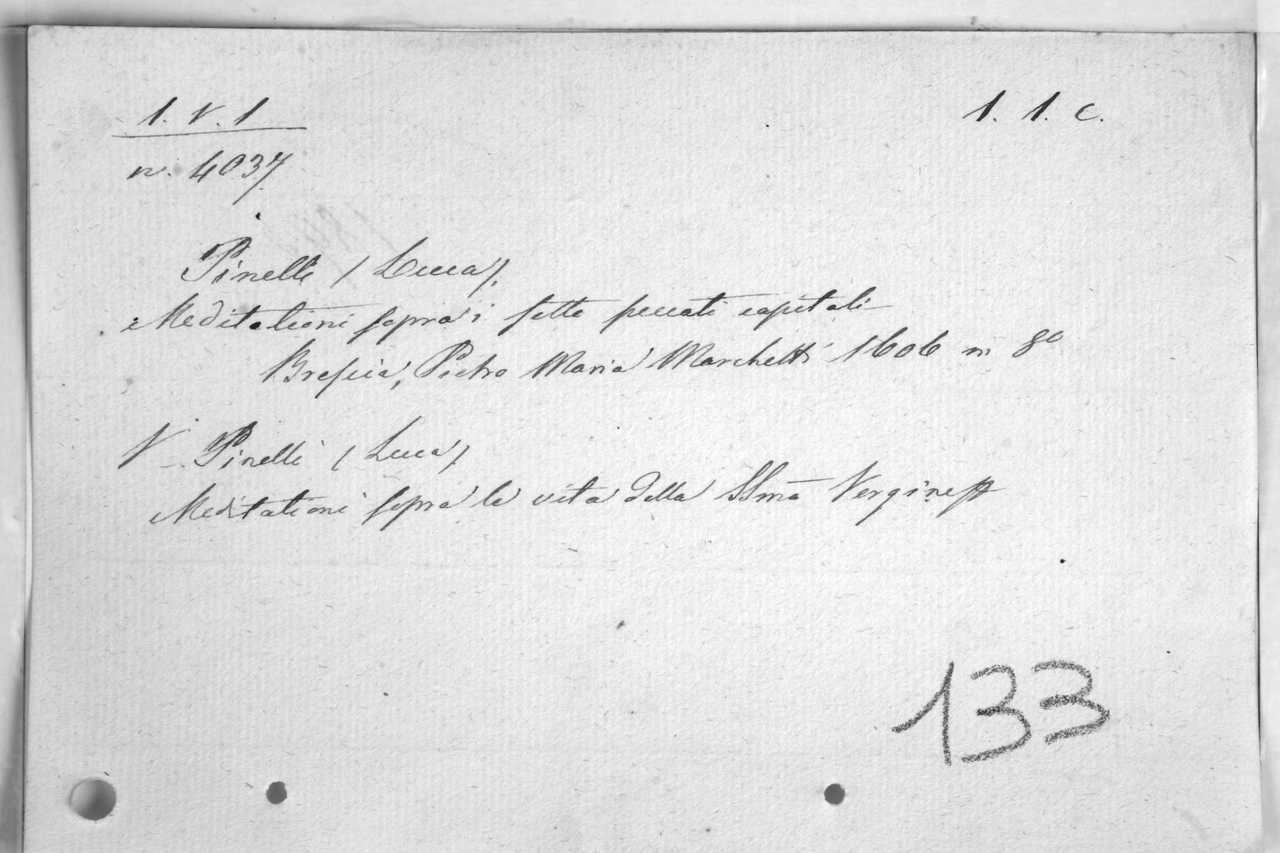 1. V. 1
1. 1. C.
n. 4037
Pinelli (Lucca).
Meditationi sopra i sette peccati capitali
Brescia, Pietro Maria Marchetti 1606 in 8o
V. Pinelli (Luca)
Meditationi sopra la vita della SSma Vergine
133